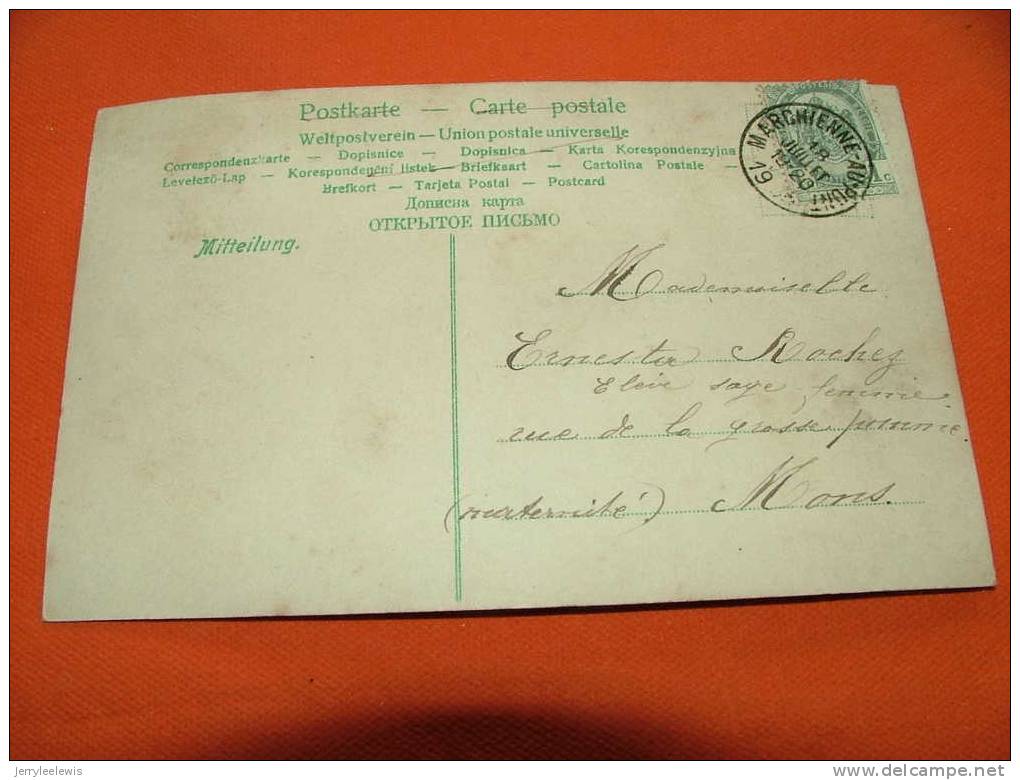 Postkarte — Carte postale
Weltpostverein — Union postale universelle
Correspondenzkarte — Dopisnice — Dopisnica — Karta Korespondenzyjna
Levelező-Lap — Korespondenční lístek — Briefkaart — Cartolina Postale —
Brefkort — Tarjeta Postal — Postcard
Дописна карта
ОТКРЫТОЕ ПИСЬМО
MARCHIENNE-AU-PONT
18
JUILLET
19
Mitteilung.
Mademoiselle
Ernesta Rochez
Elève sage femme
rue de la grosse pomme.
(maternité) Mons.
jerryleelewis
delcampe.net